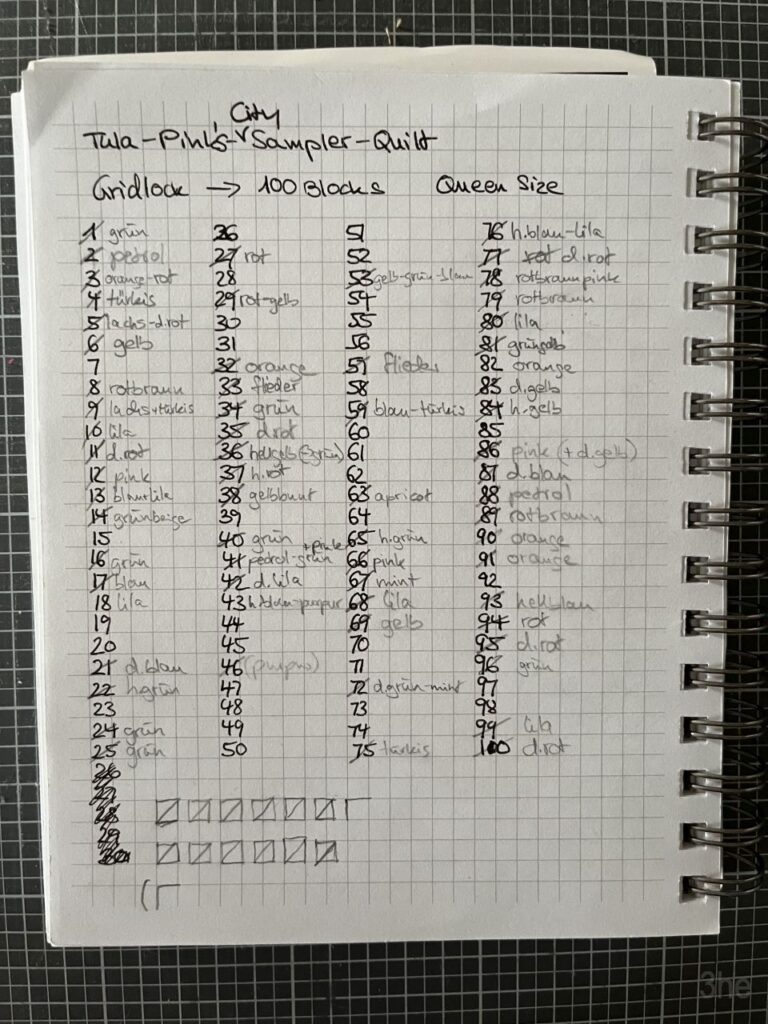 City
Tula-Pink's-Sampler-Quilt
Gridlock → 100 Blocks Queen Size
1 grün
2 petrol
3 orange-rot
4 türkis
5 lachs-d.rot
6 gelb
7
8 rotbraun
9 lachs+türkis
10 lila
11 d.rot
12 pink
13 blau+lila
14 grünbeige
15
16 grün
17 blau
18 lila
19
20
21 d.blau
22 h.grün
23
24 grün
25 grün
26
27
28
29
30
26
27 rot
28
29 rot-gelb
30
31
32 orange
33 flieder
34 grün
35 d.rot
36 hellgelb (+grün)
37 h.rot
38 gelbbunt
39
40 grün
41 petrol-grün +pink
42 d.lila
43 h.blau-purpur
44
45
46
47
48
49
50
51
52
53 gelb-grün-blau
54
55
56
57 flieder
58
59 blau-türkis
60
61
62
63 apricot
64
65 h.grün
66 pink
67 mint
68 lila
69 gelb
70
71
72 d.grün-mint
73
74
75 türkis
76 h.blau-lila
77 rot d.rot
78 rotbraunpink
79 rotbraun
80 lila
81 grüngelb
82 orange
83 d.gelb
84 h.gelb
85
86 pink (+d.gelb)
87 d.blau
88 petrol
89 rotbraun
90 orange
91 orange
92
93 hellblau
94 rot
95 d.rot
96 grün
97
98
99 lila
100 d.rot
3he